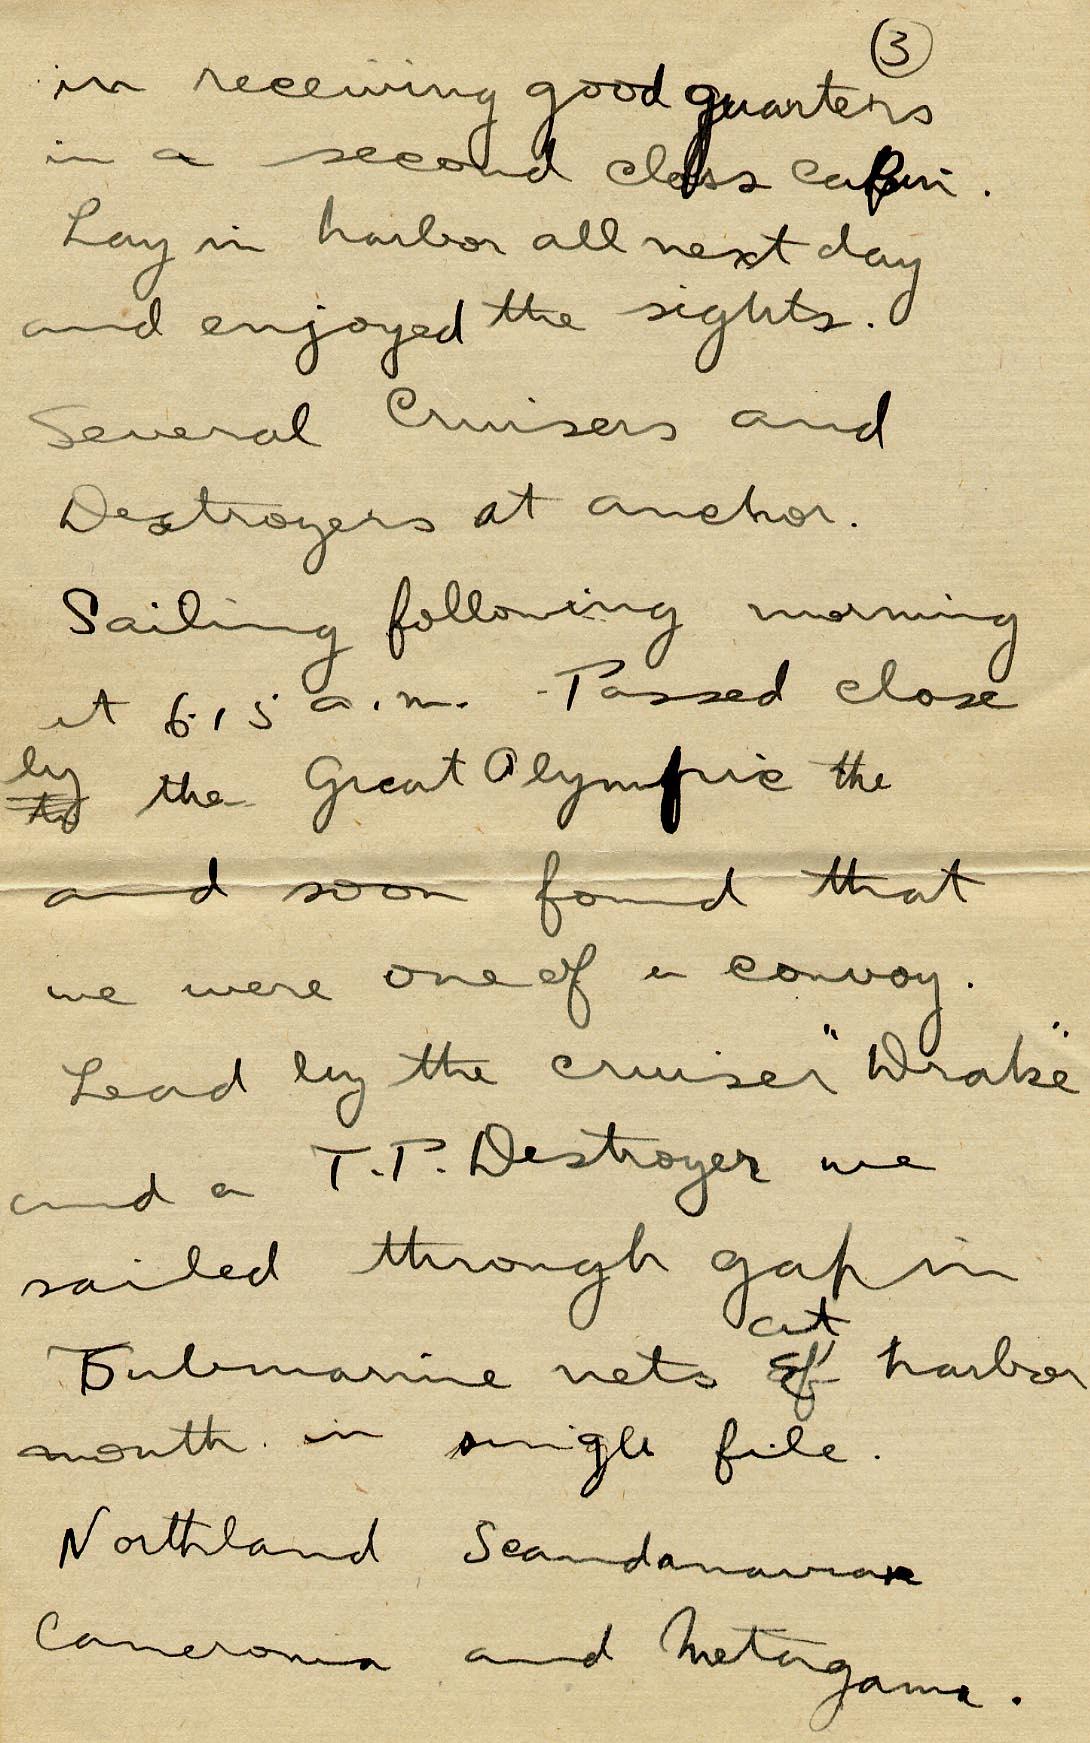 3
in receiving good quarters
in a second class cabin.
Lay in harbor all next day
and enjoyed the sights.
Several Cruisers and
Destroyers at anchor.
Sailing following morning
at 6.15 a.m. Passed close
by
to the Great Olympic the
and soon found that
we were one of a convoy.
Lead by the cruiser "Drake"
and a T.P. Destroyer we
sailed through gap in
at
Submarine nets of harbor
mouth in single file.
Northland Scandanavian
Cameronia and Metagama.